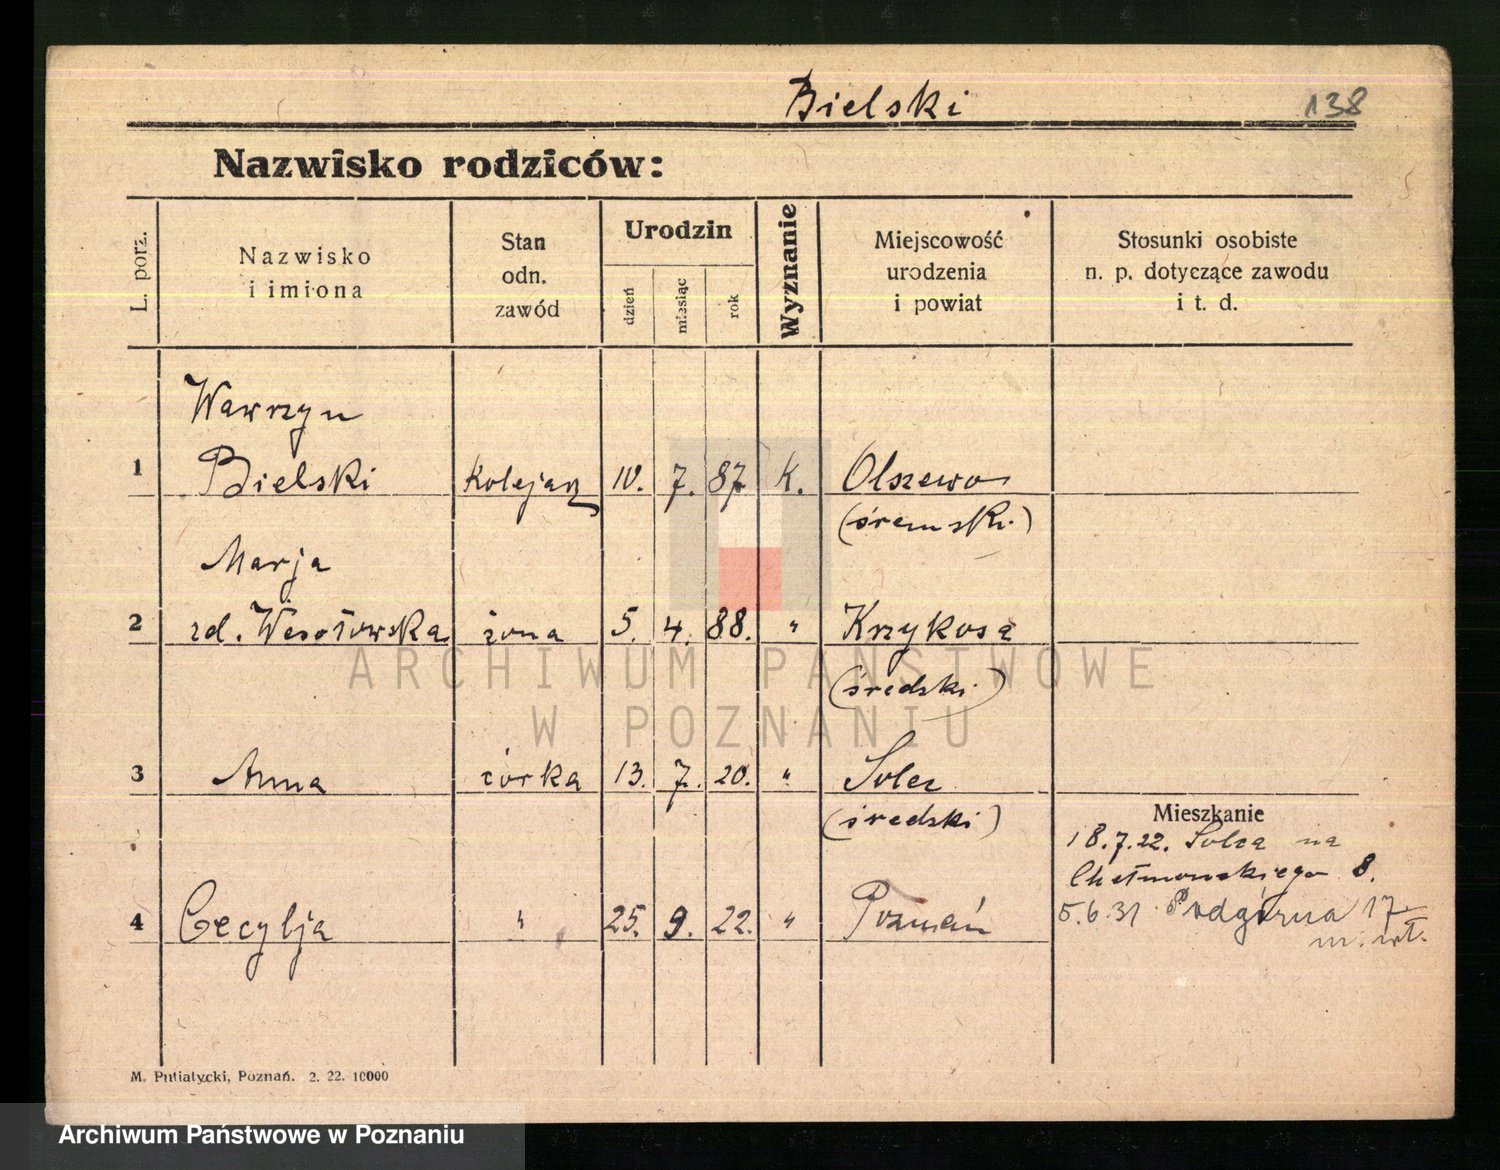 Bielski
138
Nazwisko rodziców:
L. porz.
Nazwisko
i imiona
Stan
odn.
zawód
Urodzin
dzień
miesiąc
rok
Wyznanie
Miejscowość
urodzenia
i powiat
Stosunki osobiste
n. p. dotyczące zawodu
i t. d.
Wawrzyn
1 Bielski kolejarz 10. 7. 87 K. Olszewo
(śremski)
Marja
2 zd. Wesołowska żona 5. 4. 88. " Krzykosa
(średski)
3 Anna córka 13. 7. 20. " Solec
(średski)
Mieszkanie
18.7.22. Solca na
Chełmońskiego 8.
4 Cecylja " 25. 9. 22. " Poznań
5.6.31 Podgórna 17
M. Putiatycki, Poznań. 2. 22. 10000
ARCHIWUM PAŃSTWOWE
W POZNANIU
Archiwum Państwowe w Poznaniu